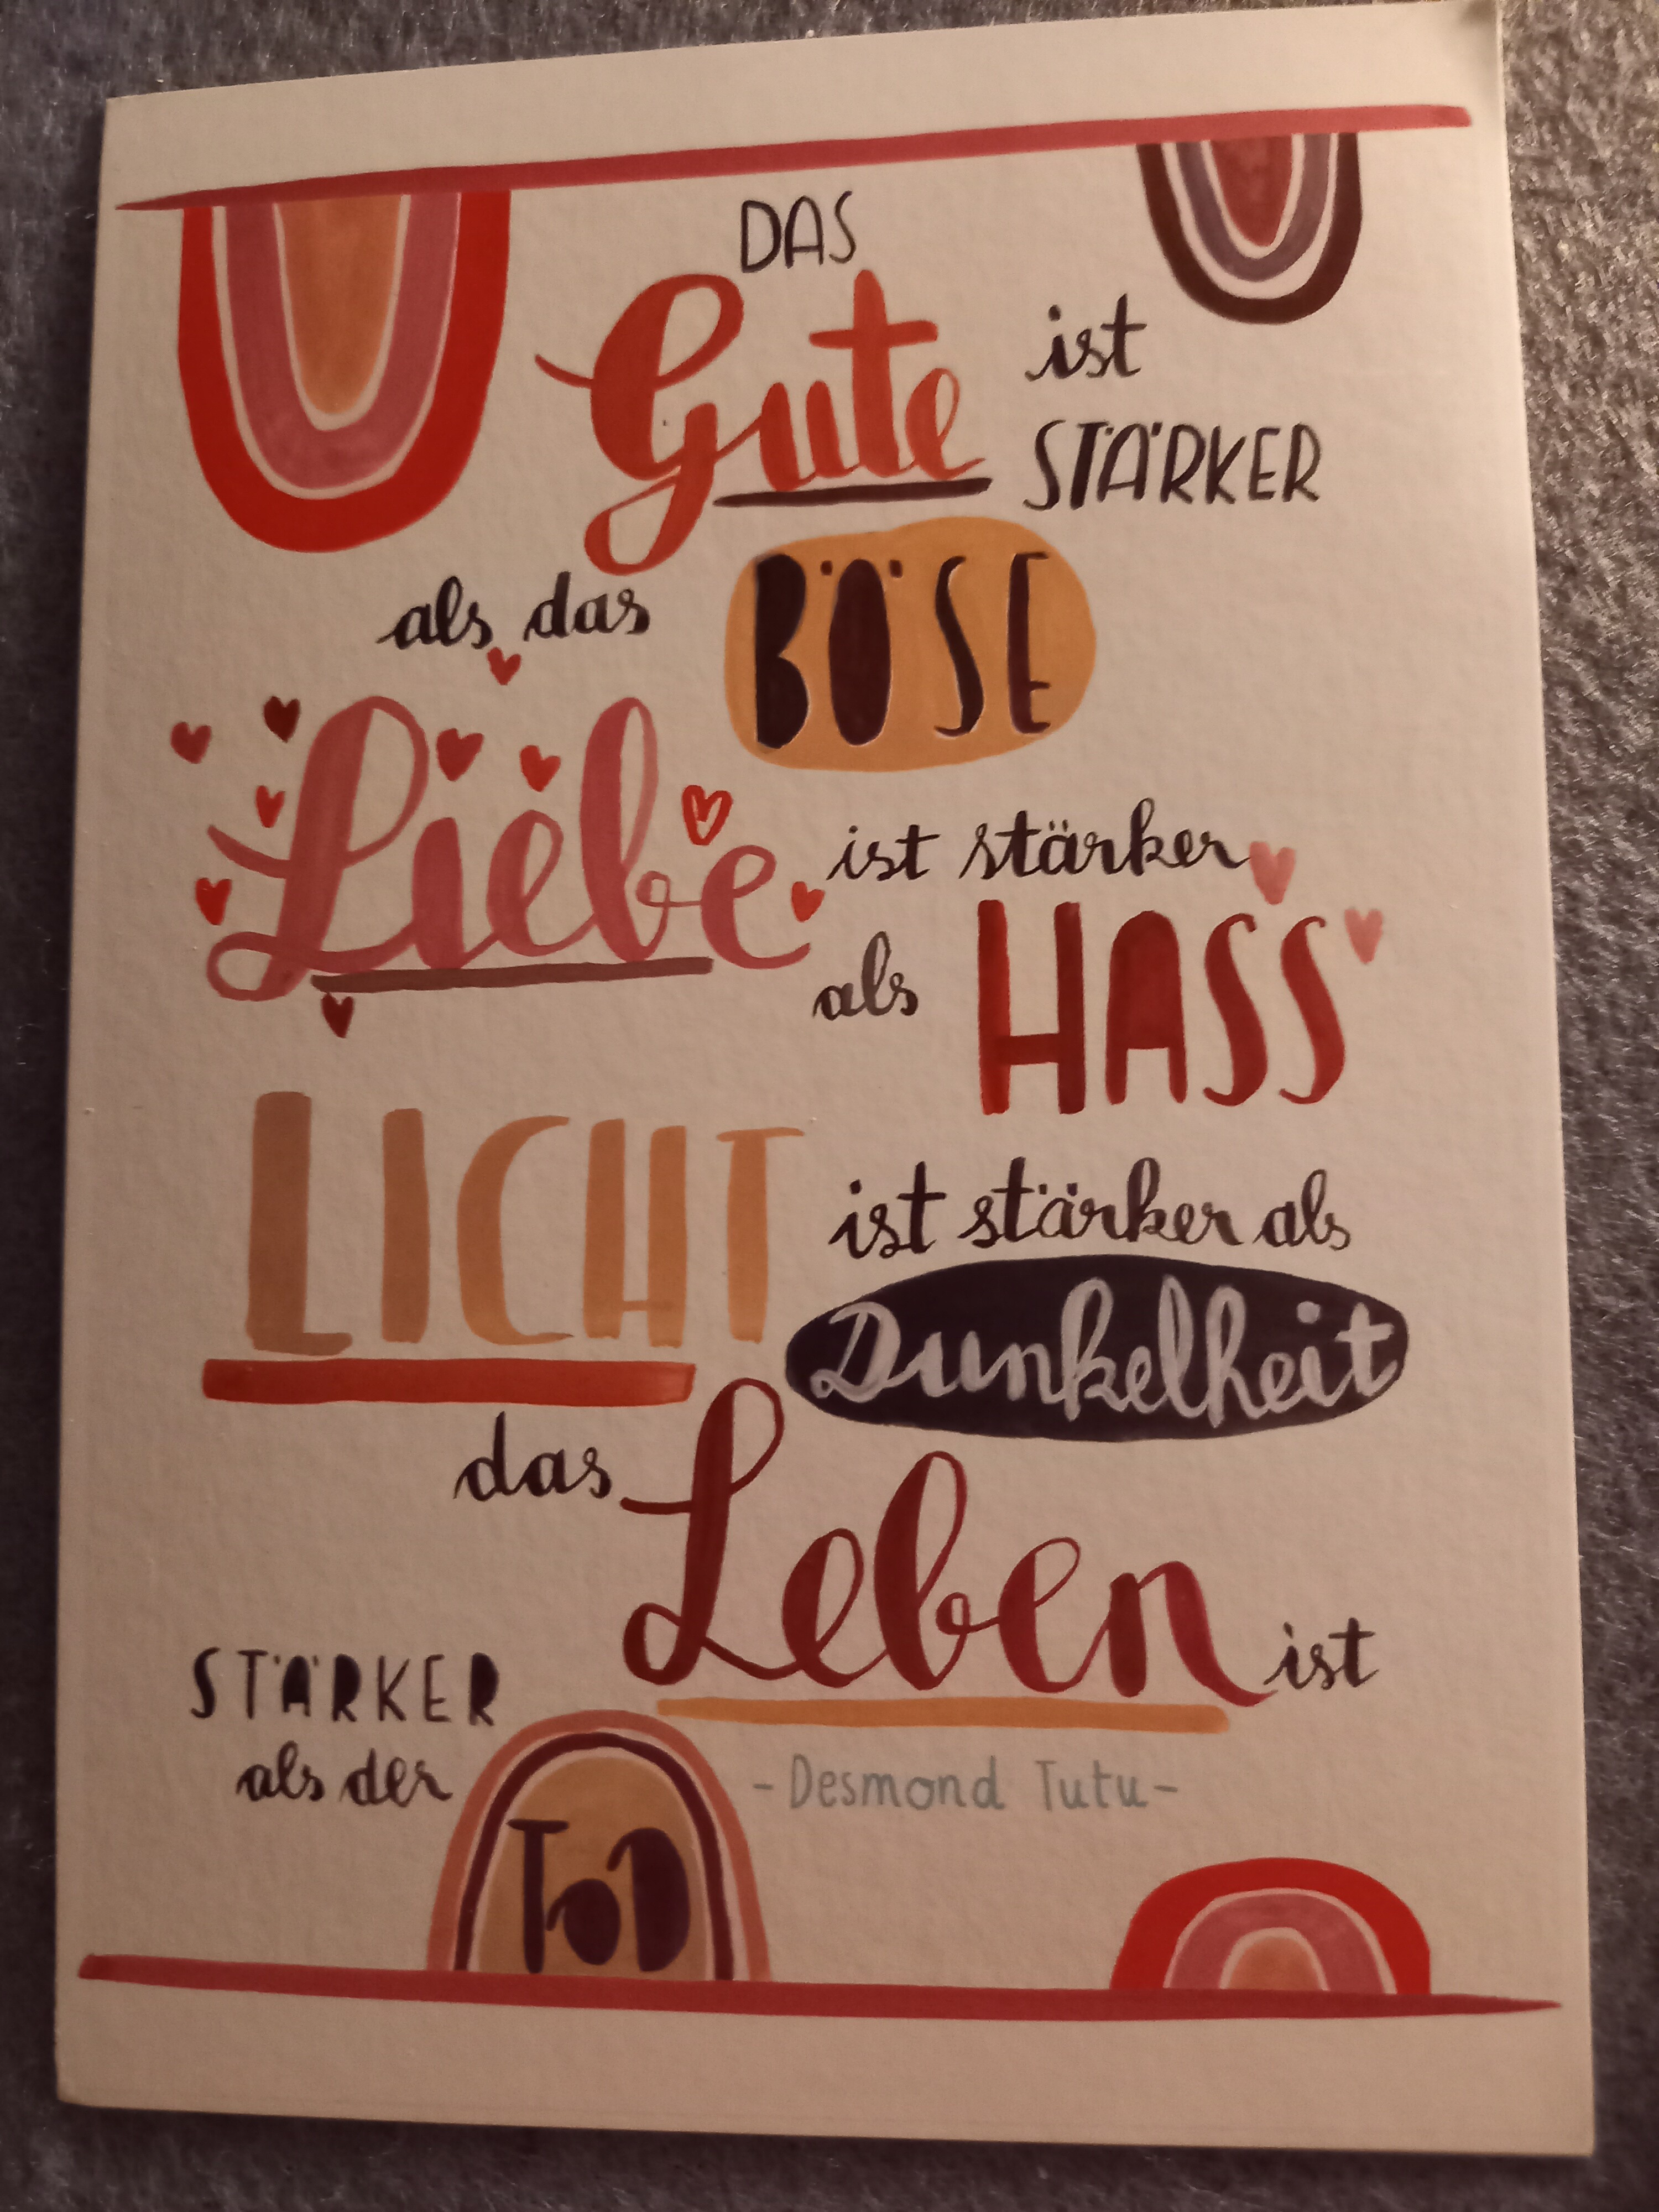 DAS
Gute ist
STÄRKER
als das BÖSE
Liebe ist stärker
als HASS
LICHT ist stärker als
Dunkelheit
das Leben ist
STÄRKER
als der TOD
-Desmond Tutu-